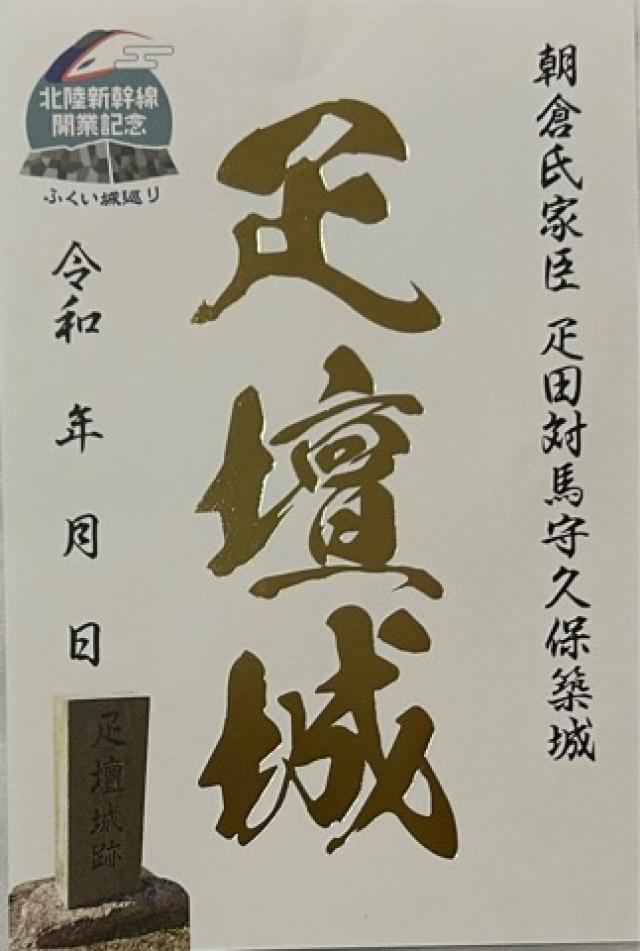 朝倉氏家臣 疋田対馬守久保築城
疋壇城
北陸新幹線
開業記念
ふくい城巡り
令和 年 月 日
疋壇城跡